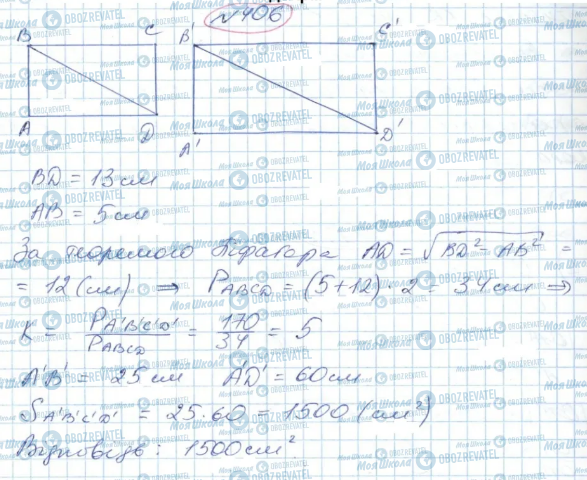 №406
B C B' C'
A D A' D'
BD = 13 см
AB = 5 см
За теоремою Піфагора AD = √(BD² - AB²) =
= 12 (см) ⇒ P_ABCD = (5+12)·2 = 34 см ⇒
K = P_A'B'C'D' / P_ABCD = 170/34 = 5
A'B' = 25 см AD' = 60 см
S_A'B'C'D' = 25·60 = 1500 (см²)
Відповідь: 1500 см².
Моя Школа OBOZREVATEL